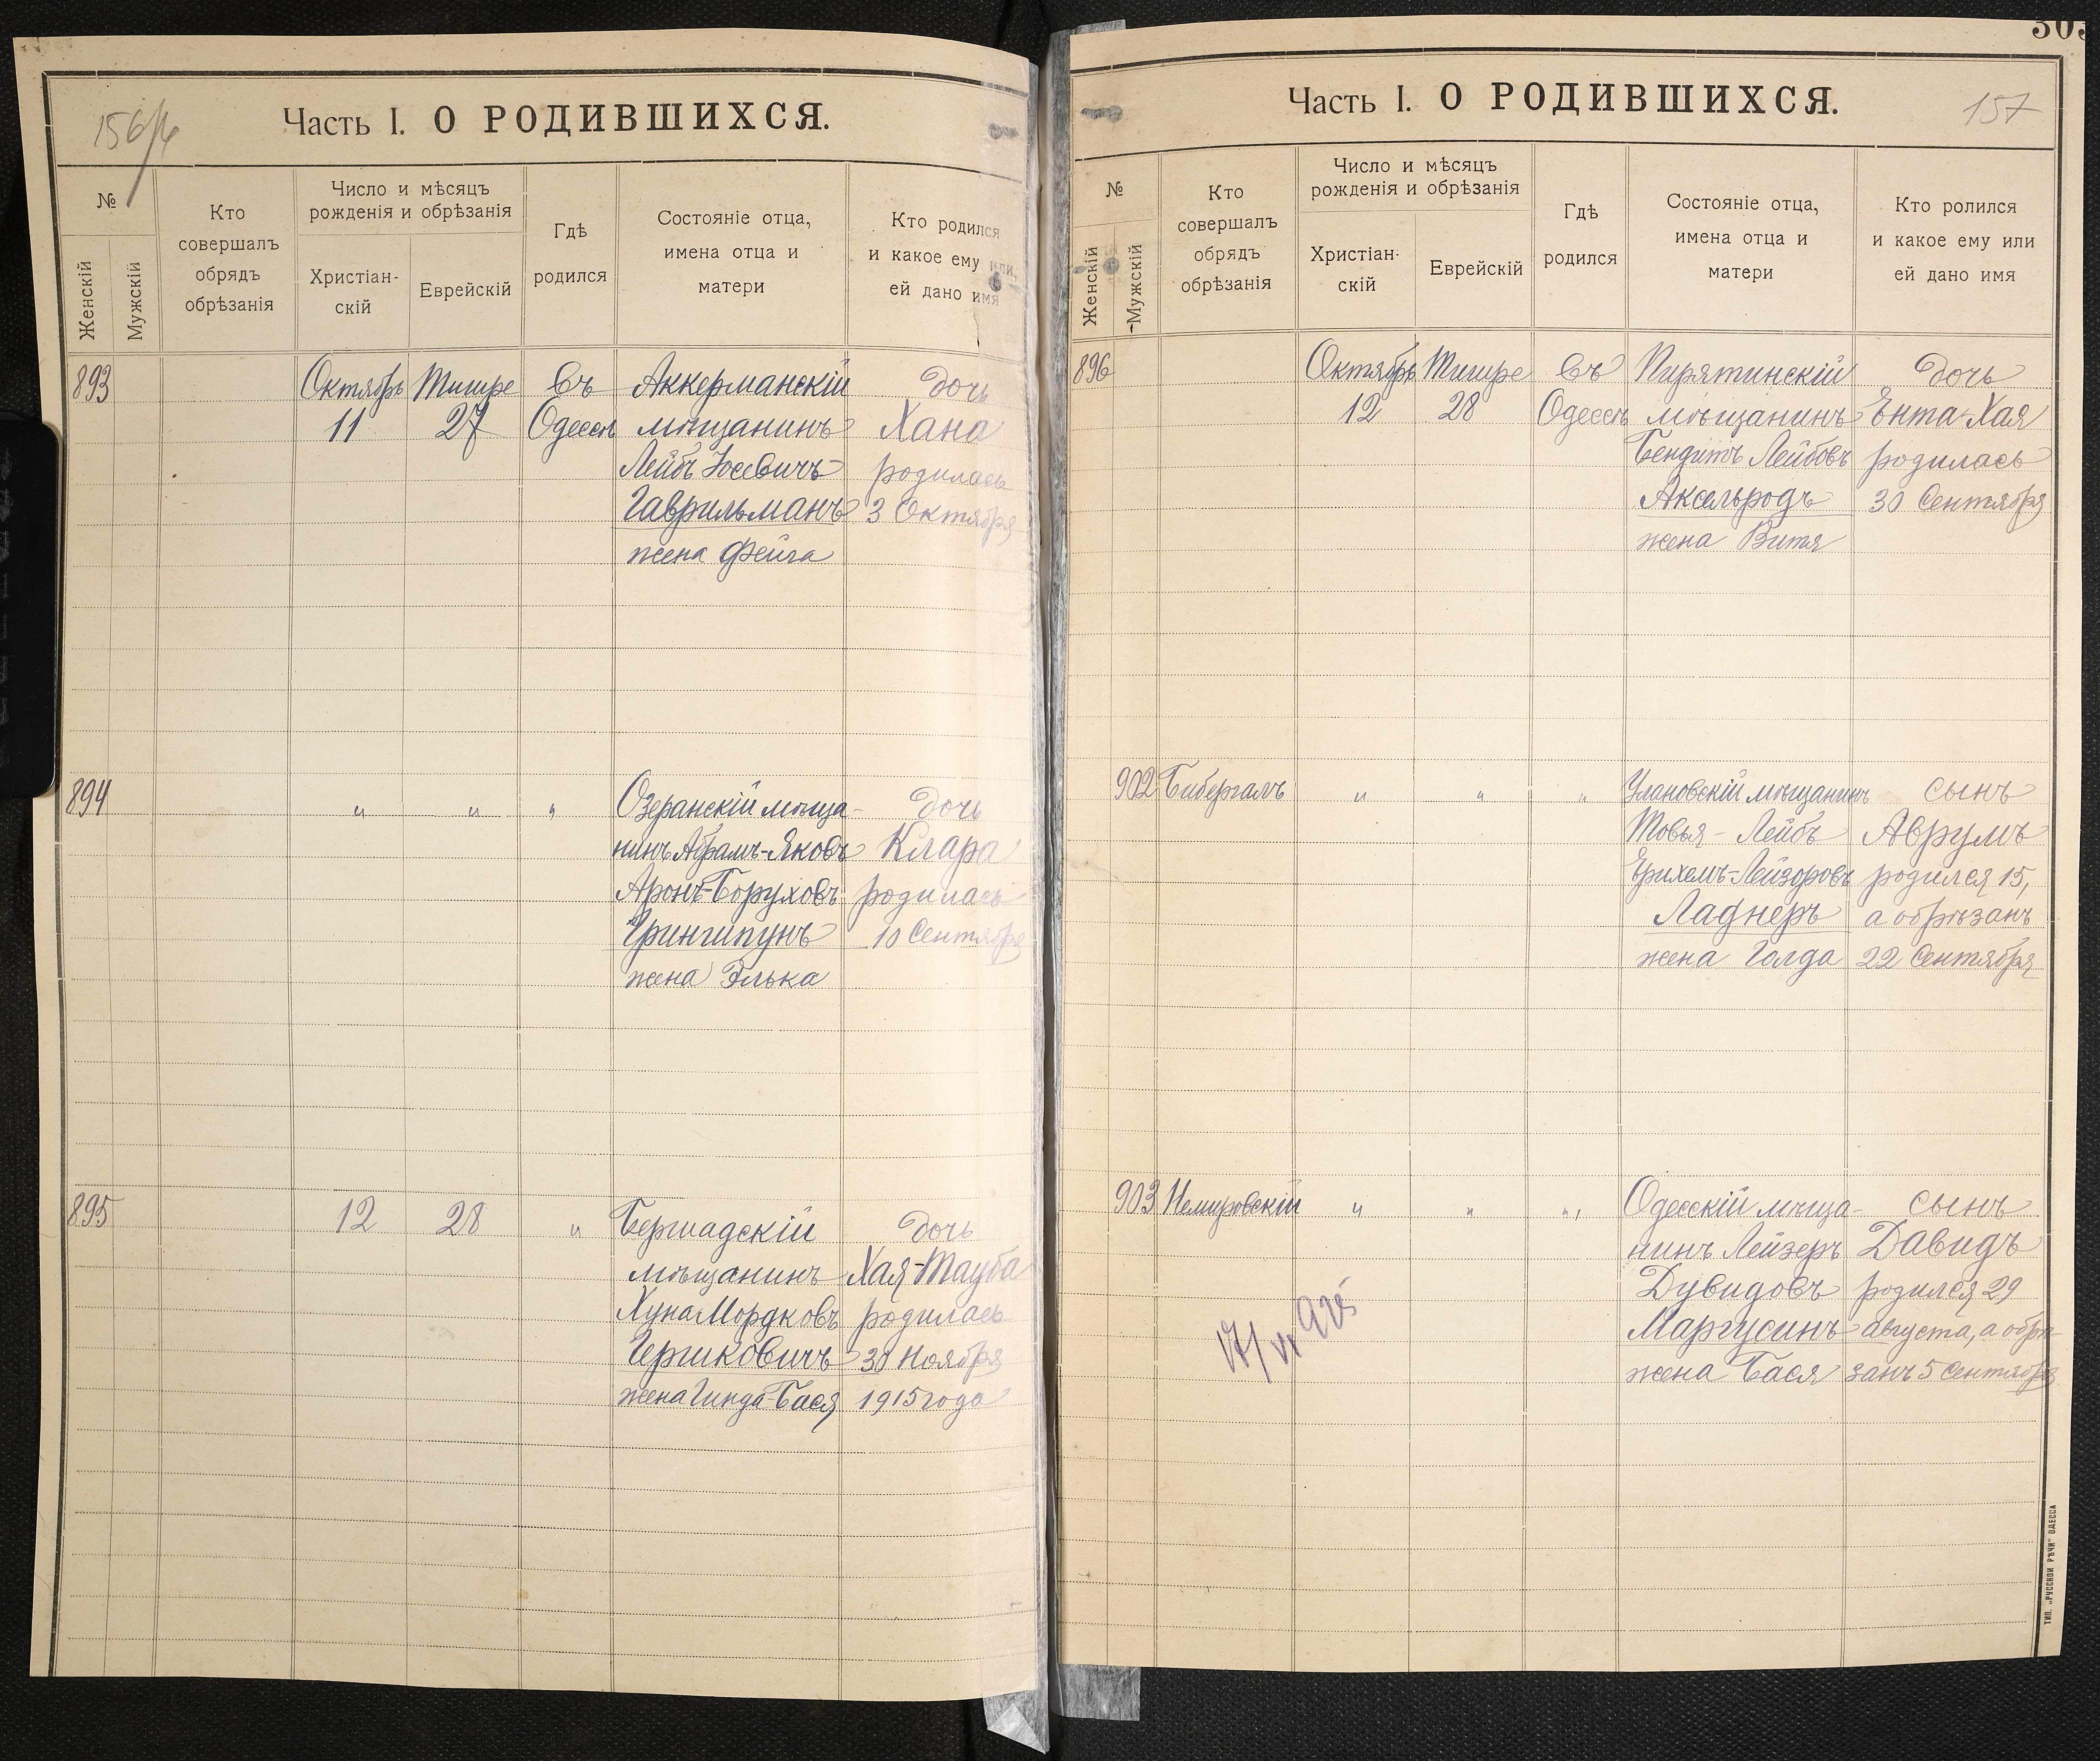 156/4
Часть I. О РОДИВШИХСЯ.
№
Женскій
Мужскій
Кто
совершалъ
обрядъ
обрѣзанія
Число и мѣсяцъ
рожденія и обрѣзанія
Христіан-
скій
Еврейскій
Гдѣ
родился
Состояніе отца,
имена отца и
матери
Кто родился
и какое ему или
ей дано имя
893
Октябрь
11
Тишре
27
въ
Одессѣ
Аккерманскій
мѣщанинъ
Лейбъ Іосевичъ
Гаврильманъ
жена Фейга
дочь
Хана
родилась
3 Октября
894
"
"
"
Озеранскій мѣща-
нинъ Абрамъ-Яковъ
Аронъ-Боруховъ
Грингипунъ
жена Элька
дочь
Клара
родилась
10 Сентября
895
12
28
"
Бершадскій
мѣщанинъ
Хуна Мордковъ
Гершковичъ
жена Гинда-Бася
дочь
Хая-Тауба
родилась
30 Ноября
1915 года
303
Часть I. О РОДИВШИХСЯ.
157
№
Женскій
Мужскій
Кто
совершалъ
обрядъ
обрѣзанія
Число и мѣсяцъ
рожденія и обрѣзанія
Христіан-
скій
Еврейскій
Гдѣ
родился
Состояніе отца,
имена отца и
матери
Кто ролился
и какое ему или
ей дано имя
896
Октябрь
12
Тишре
28
въ
Одессѣ
Пирятинскій
мѣщанинъ
Бендитъ Лейбовъ
Аксельродъ
жена Витя
дочь
Ента-Хая
родилась
30 Сентября
902
Бибергалъ
"
"
"
Улановскій мѣщанинъ
Товья-Лейбъ
Ерихемъ-Лейзоровъ
Ладнеръ
жена Голда
сынъ
Аврумъ
родился 15,
а обрѣзанъ
22 Сентября
903
Немировскій
"
"
"
Одесскій мѣща-
нинъ Лейзеръ
Дувидовъ
Маргусинъ
жена Бася
сынъ
Давидъ
родился 29
августа, а обрѣ-
занъ 5 Сентября
ТИП. „РУССКОЙ РѢЧИ" ОДЕССА